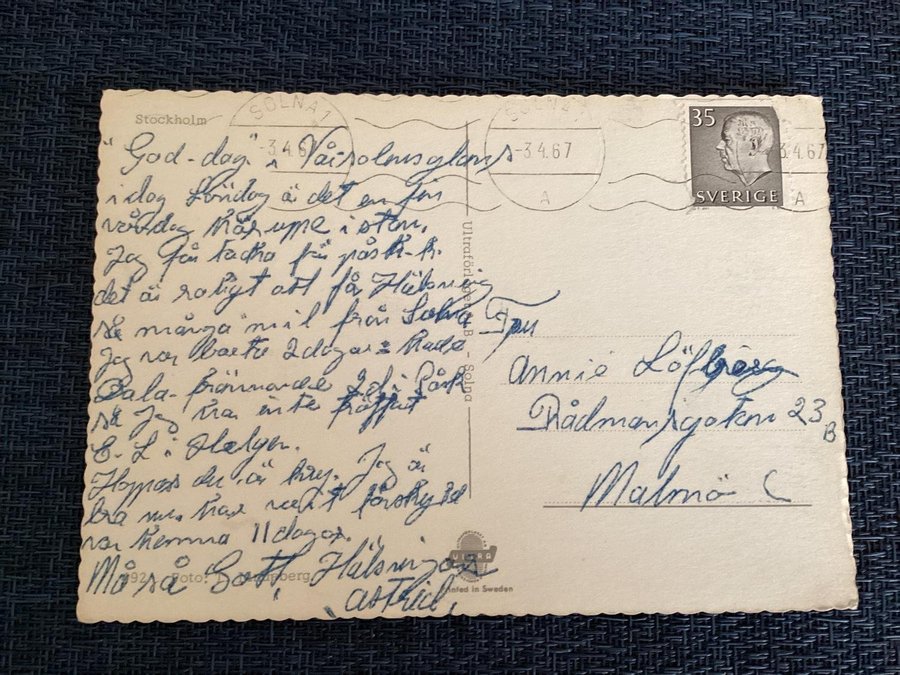 Stockholm
SOLNA 1
-3.4.6
SOLNA
-3.4.67
A
35
SVERIGE
3.4.67
A
"God-dag" i Vårsolensglans
i dag Söndag är det en fin
vårdag här uppe i stan.
Jag får tacka för påsk-k.
det är roligt att få Hälsning
så många mil från Solna
Jag var borta 2 dagar
främmande
så Jag har inte träffat
E. L i Helgen.
Hoppas du är kry. Jag är
bra nu. har varit förskyld
var hemma 11 dagar.
Må så Gott, Hälsningar
Astrid,
Ultraförlaget AB - Solna
Fru
Annie Löfberg
Rådmansgatan 23 B
Malmö C
Foto:
ULTRA
Printed in Sweden